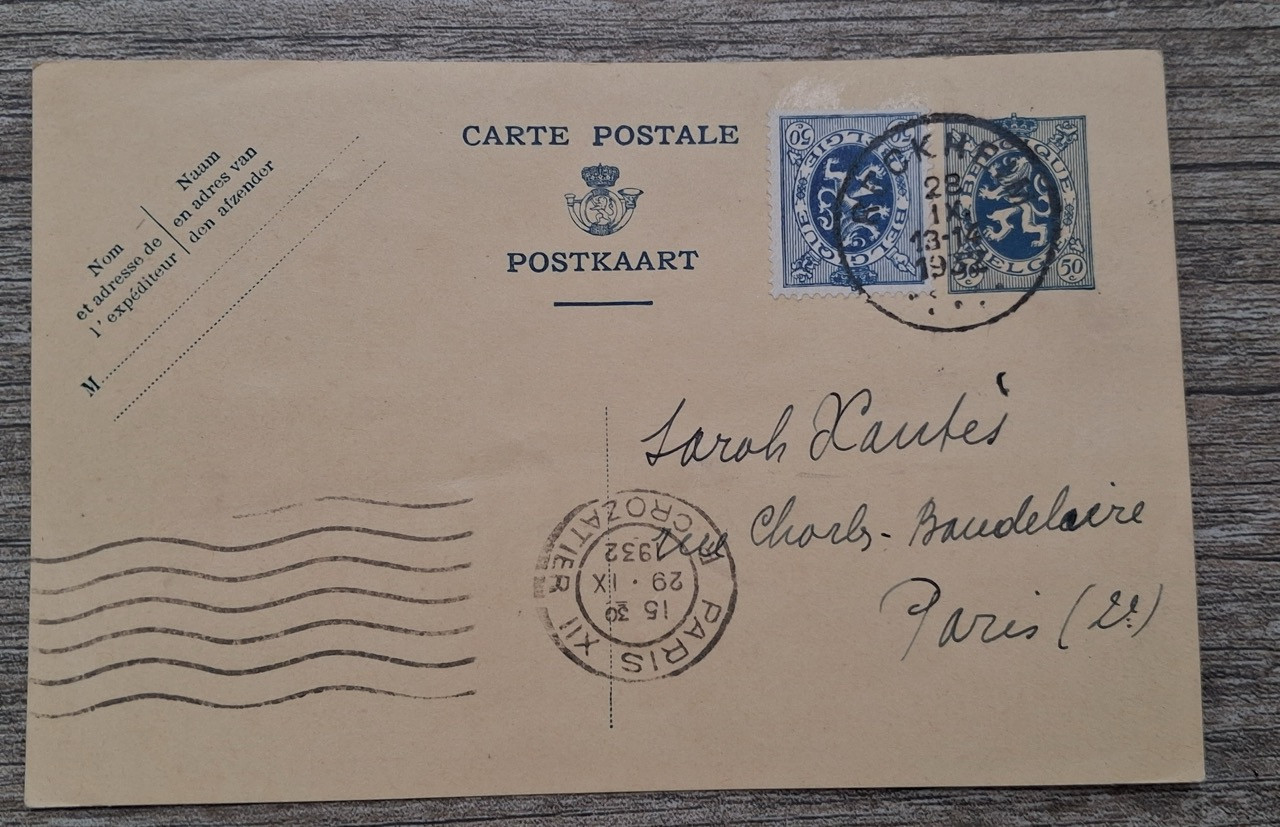 CARTE POSTALE
POSTKAART
Nom
et adresse de
l'expéditeur
Naam
en adres van
den afzender
M
50 50
BELGIE BELGIQUE
BELGIQUE
BELGIË
50 c
28
IX
13-14
1932
Sarah Xantès
rue Charles-Baudelaire
Paris (2e)
PARIS XII
R. CROZATIER
15 30
29 · IX
1932